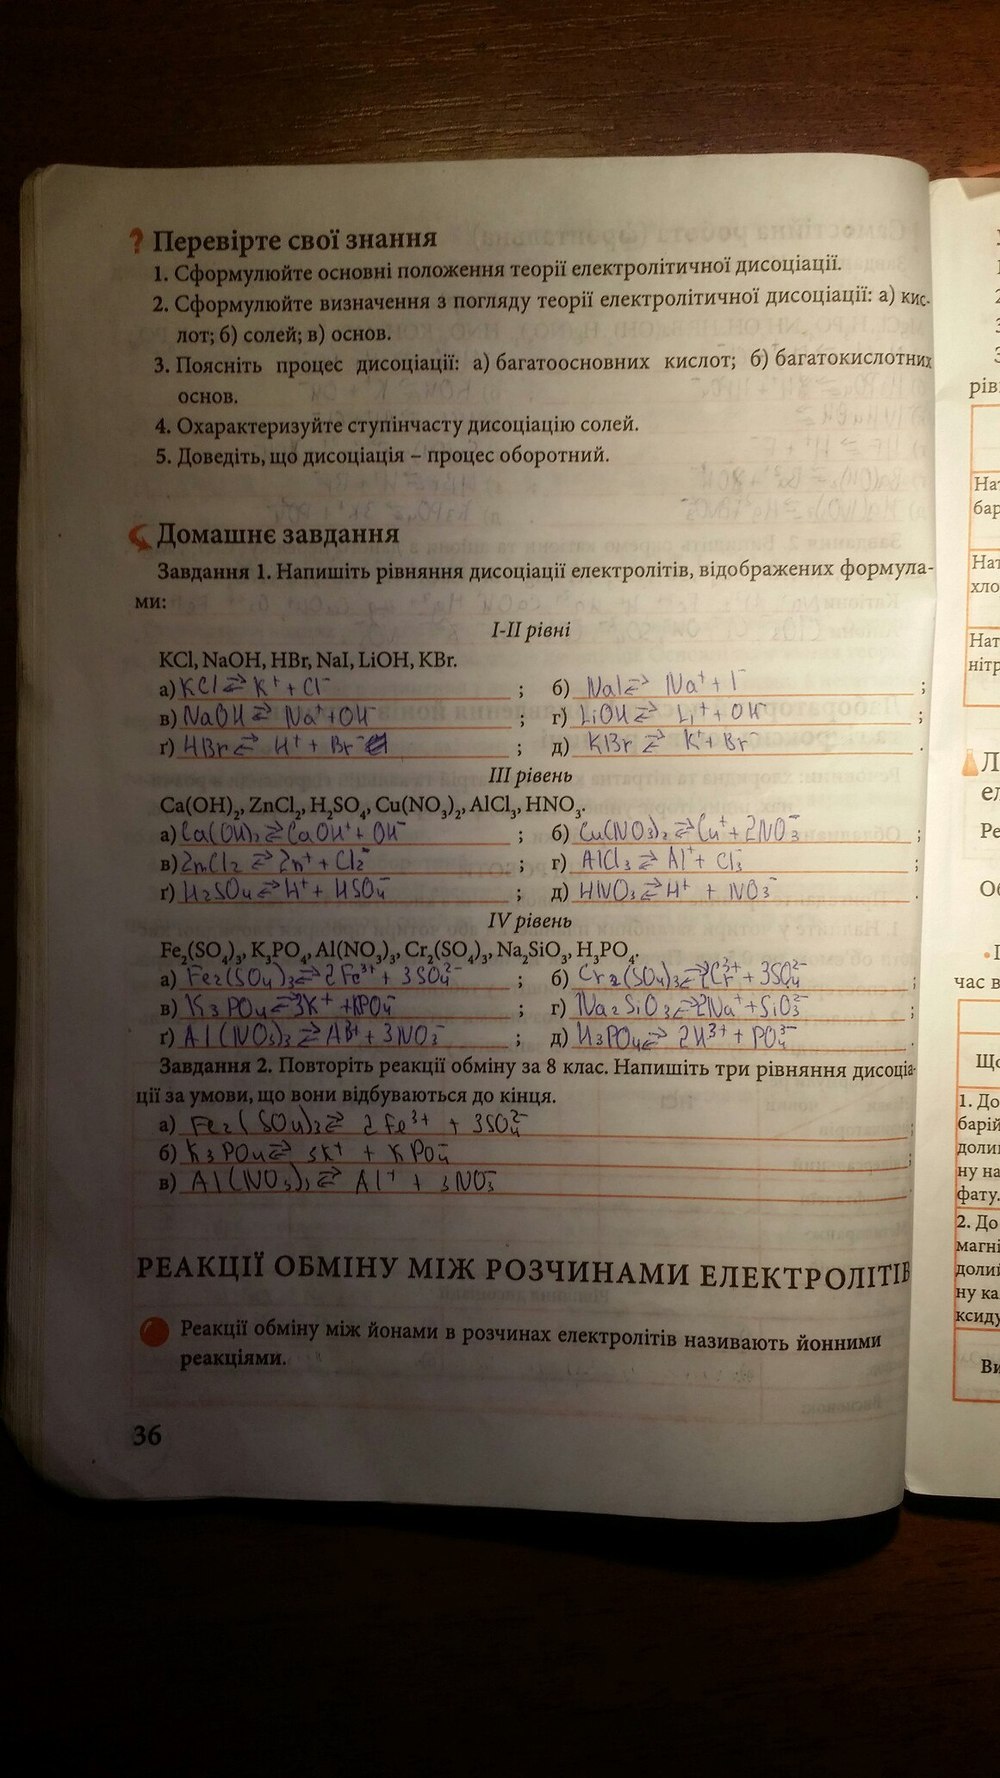 ? Перевірте свої знання
1. Сформулюйте основні положення теорії електролітичної дисоціації.
2. Сформулюйте визначення з погляду теорії електролітичної дисоціації: а) кис-
лот; б) солей; в) основ.
3. Поясніть процес дисоціації: а) багатоосновних кислот; б) багатокислотних
основ.
4. Охарактеризуйте ступінчасту дисоціацію солей.
5. Доведіть, що дисоціація – процес оборотний.
Домашнє завдання
Завдання 1. Напишіть рівняння дисоціації електролітів, відображених формула-
ми:
І-ІІ рівні
KCl, NaOH, HBr, NaI, LiOH, KBr.
а) KCl ⇄ K⁺ + Cl⁻ ; б) NaI ⇄ Na⁺ + I⁻ ;
в) NaOH ⇄ Na⁺ + OH⁻ ; г) LiOH ⇄ Li⁺ + OH⁻ ;
ґ) HBr ⇄ H⁺ + Br⁻ ; д) KBr ⇄ K⁺ + Br⁻ .
ІІІ рівень
Ca(OH)₂, ZnCl₂, H₂SO₄, Cu(NO₃)₂, AlCl₃, HNO₃.
а) Ca(OH)₂ ⇄ CaOH⁺ + OH⁻ ; б) Cu(NO₃)₂ ⇄ Cu⁺ + 2NO₃⁻ ;
в) ZnCl₂ ⇄ Zn⁺ + Cl₂⁻ ; г) AlCl₃ ⇄ Al⁺ + Cl₃⁻ ;
ґ) H₂SO₄ ⇄ H⁺ + HSO₄⁻ ; д) HNO₃ ⇄ H⁺ + NO₃⁻ .
IV рівень
Fe₂(SO₄)₃, K₃PO₄, Al(NO₃)₃, Cr₂(SO₄)₃, Na₂SiO₃, H₃PO₄.
а) Fe₂(SO₄)₃ ⇄ 2Fe³⁺ + 3SO₄²⁻ ; б) Cr₂(SO₄)₃ ⇄ 2Cr³⁺ + 3SO₄²⁻ ;
в) K₃PO₄ ⇄ 3K⁺ + KPO₄⁻ ; г) Na₂SiO₃ ⇄ 2Na⁺ + SiO₃²⁻ ;
ґ) Al(NO₃)₃ ⇄ Al³⁺ + 3NO₃⁻ ; д) H₃PO₄ ⇄ 2H³⁺ + PO₄³⁻ .
Завдання 2. Повторіть реакції обміну за 8 клас. Напишіть три рівняння дисоціа-
ції за умови, що вони відбуваються до кінця.
а) Fe₂(SO₄)₃ ⇄ 2Fe³⁺ + 3SO₄²⁻ ;
б) K₃PO₄ ⇄ 3K⁺ + KPO₄⁻ ;
в) Al(NO₃)₃ ⇄ Al⁺ + 3NO₃⁻ .
РЕАКЦІЇ ОБМІНУ МІЖ РОЗЧИНАМИ ЕЛЕКТРОЛІТІВ
Реакції обміну між йонами в розчинах електролітів називають йонними
реакціями.
36
рів
Нат
бар
Нат
хло
Нат
нітр
Л
ел
Ре
Об
час в
Що
1. До
барій
доли
ну на
фату.
2. До
магні
долий
ну ка
ксиду
Ви